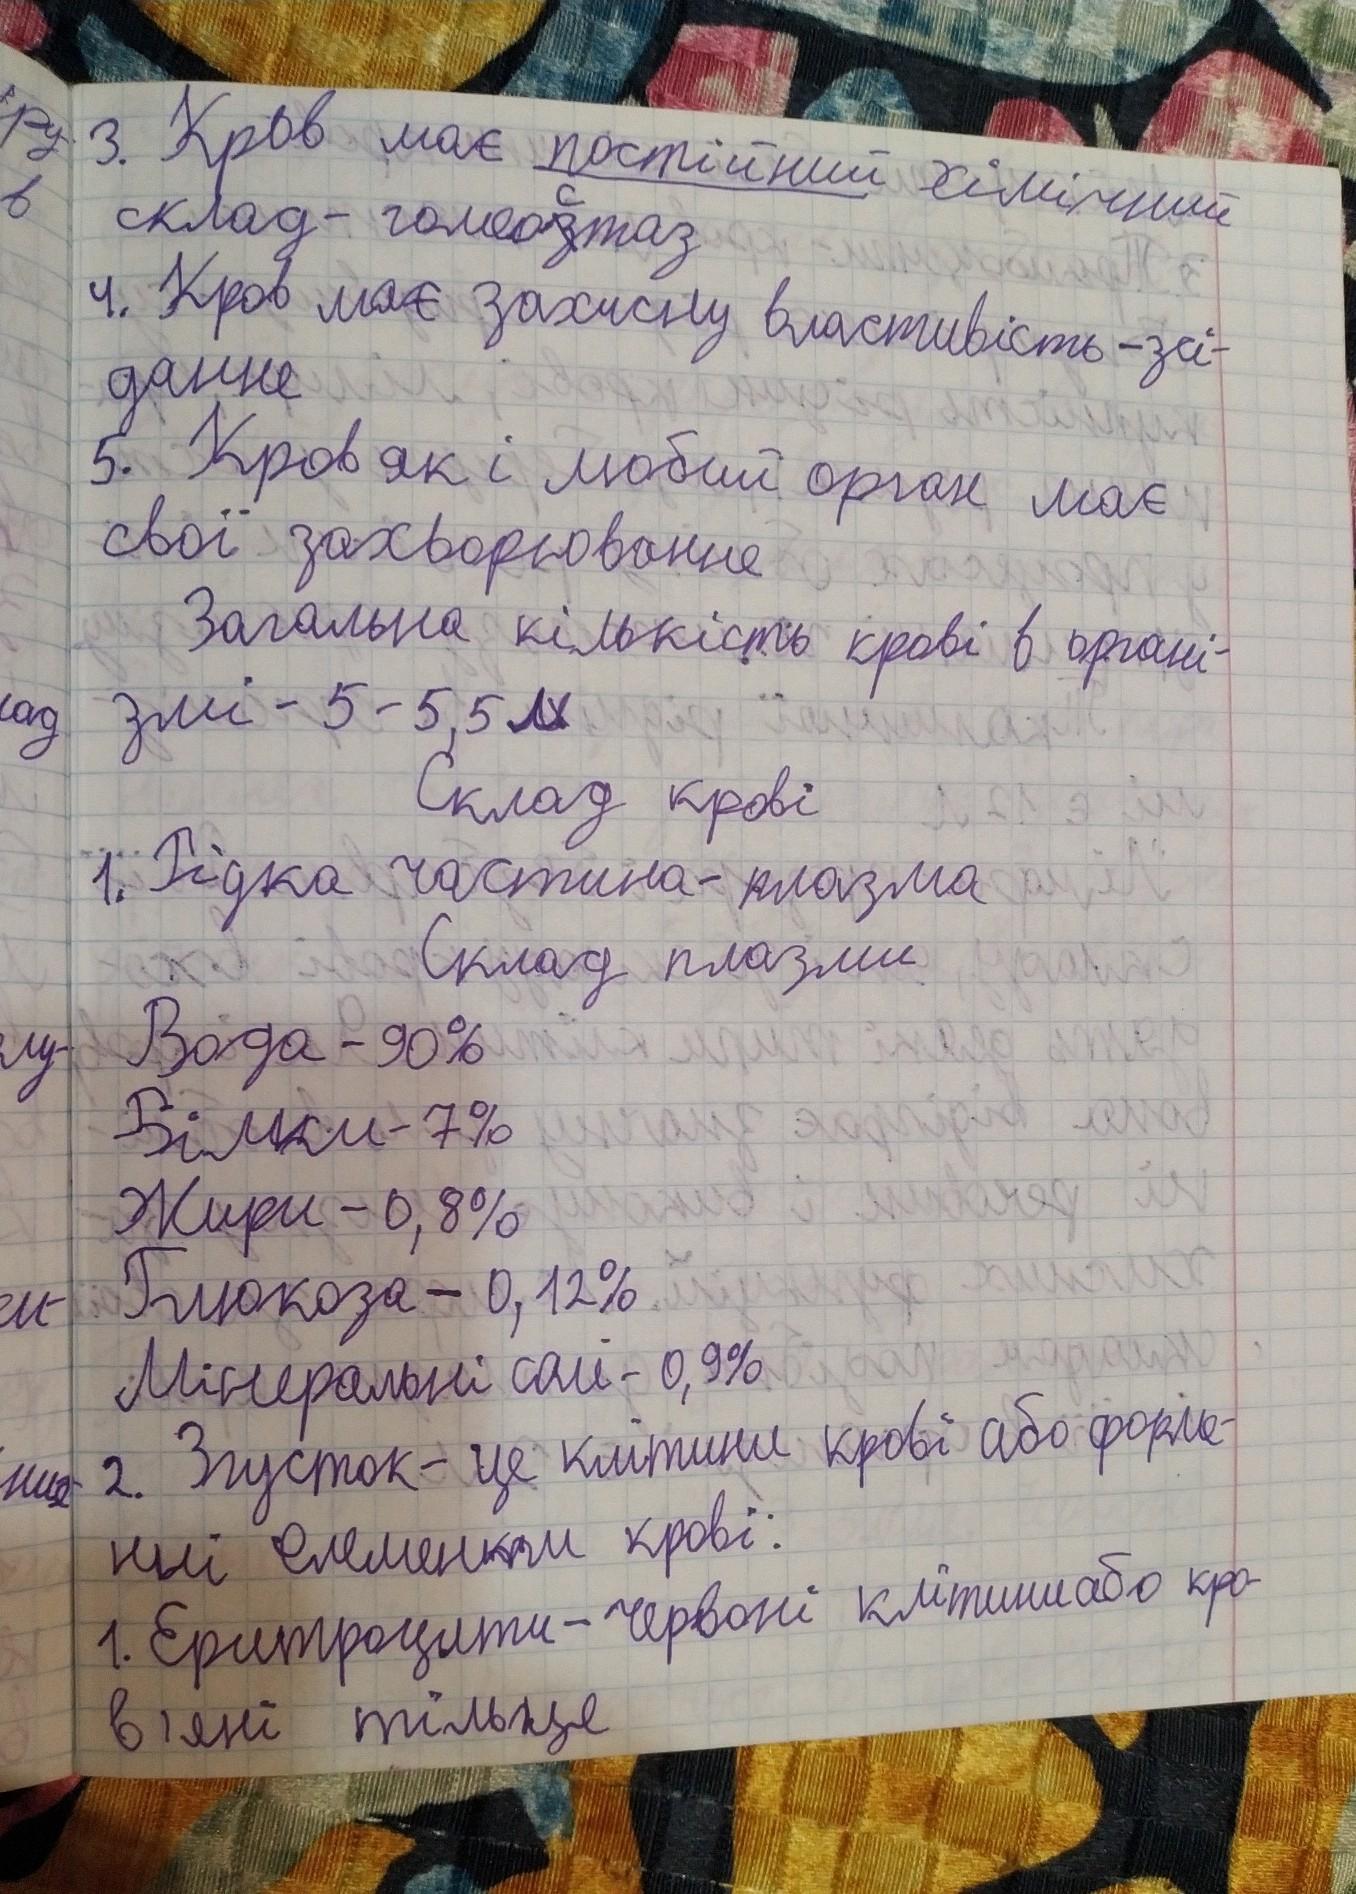 3. Кров має постійний хімічний
склад - гомеостаз
4. Кров має захисну властивість - зсі-
дання
5. Кров як і любий орган має
свої захворювання
Загальна кількість крові в органі-
змі - 5 - 5,5 л
Склад крові
1. Рідка частина - плазма
Склад плазми
Вода - 90%
Білки - 7%
Жири - 0,8%
Глюкоза - 0,12%
Мінеральні солі - 0,9%
2. Згусток - це клітини крові або форме-
нні елементи крові:
1. Еритроцити - червоні клітини або кро-
в'яні тільця